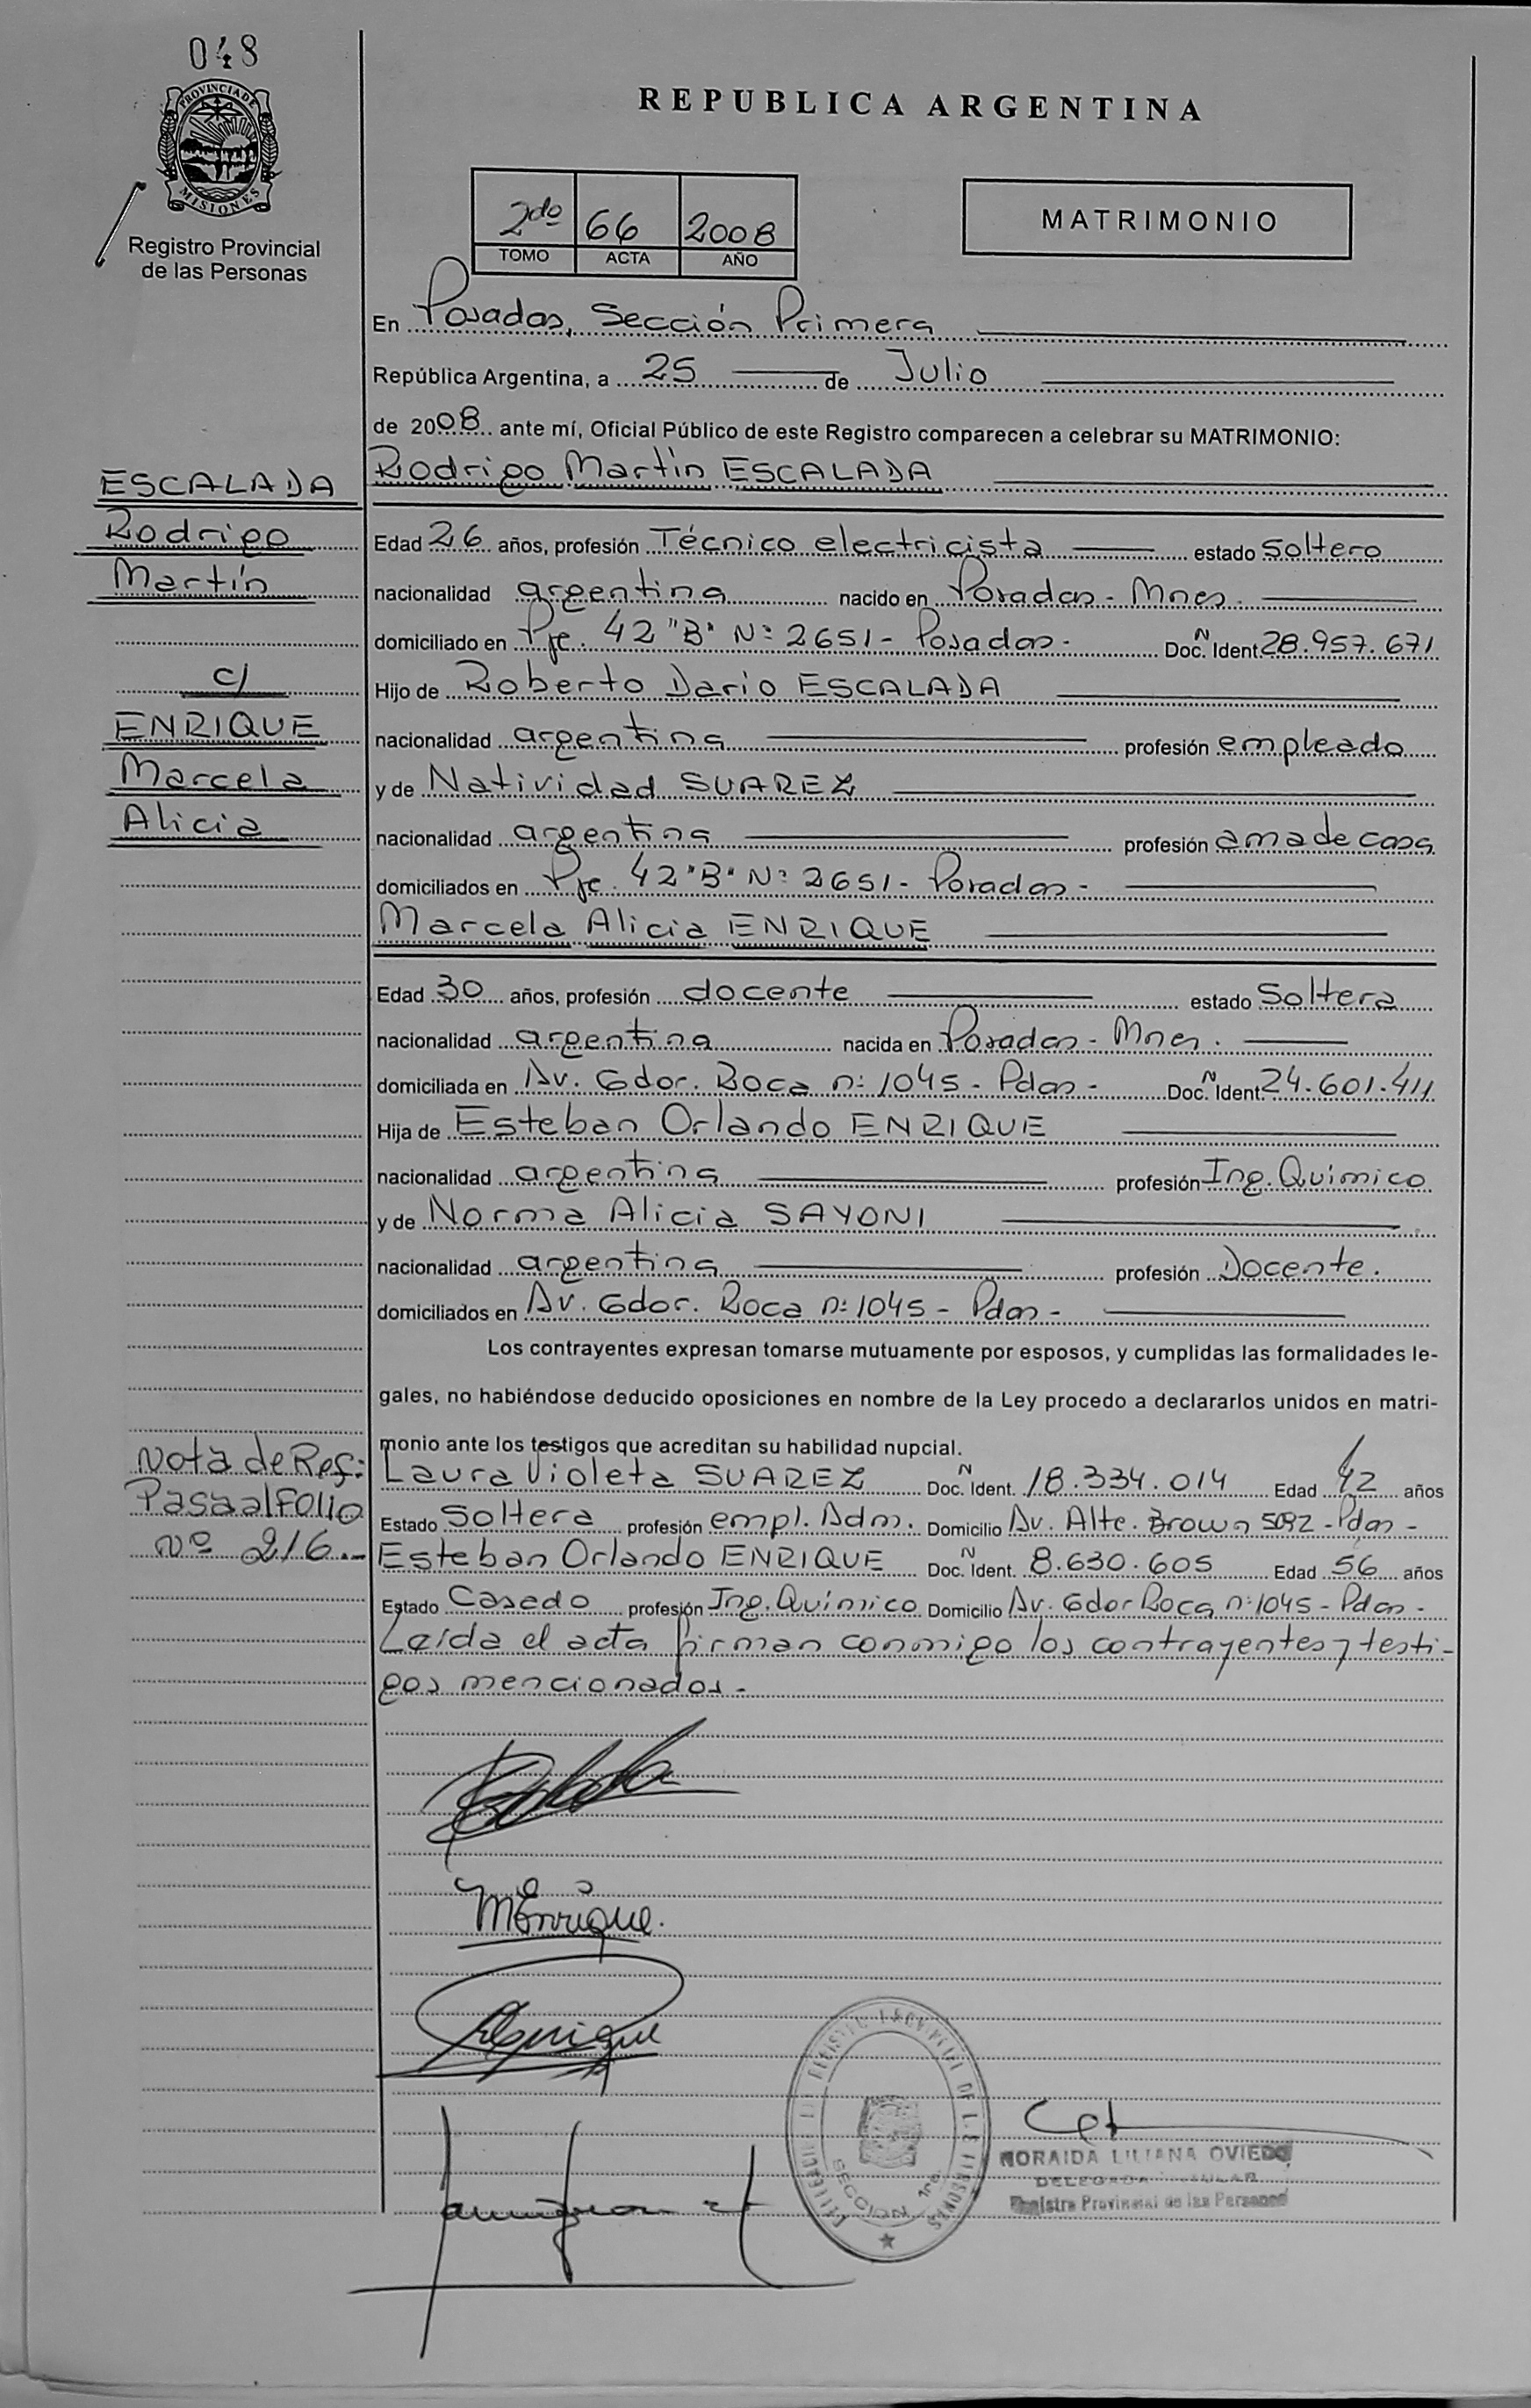 048
PROVINCIA DE
MISIONES
Registro Provincial
de las Personas
REPUBLICA ARGENTINA
2do 66 2008
TOMO ACTA AÑO
MATRIMONIO
En Posadas, Sección Primera
República Argentina, a 25 de Julio
de 2008 ante mí, Oficial Público de este Registro comparecen a celebrar su MATRIMONIO:
Rodrigo Martín ESCALADA
ESCALADA
Rodrigo
Martín
c/
ENRIQUE
Marcela
Alicia
Edad 26 años, profesión Técnico electricista estado Soltero
nacionalidad argentina nacido en Posadas - Mnes.
domiciliado en Pje. 42 "B" Nº 2651 - Posadas - Doc. N Ident 28.957.671
Hijo de Roberto Dario ESCALADA
nacionalidad argentina profesión empleado
y de Natividad SUAREZ
nacionalidad argentina profesión ama de casa
domiciliados en Pje. 42 "B" Nº 2651 - Posadas -
Marcela Alicia ENRIQUE
Edad 30 años, profesión docente estado Soltera
nacionalidad argentina nacida en Posadas - Mnes.
domiciliada en Av. Gdor. Roca nº 1045 - Pdas - Doc. N Ident 24.601.411
Hija de Esteban Orlando ENRIQUE
nacionalidad argentina profesión Ing. Químico
y de Norma Alicia SAYONI
nacionalidad argentina profesión Docente.
domiciliados en Av. Gdor. Roca nº 1045 - Pdas -
Los contrayentes expresan tomarse mutuamente por esposos, y cumplidas las formalidades le-
gales, no habiéndose deducido oposiciones en nombre de la Ley procedo a declararlos unidos en matri-
monio ante los testigos que acreditan su habilidad nupcial.
Laura Violeta SUAREZ Doc. N Ident. 18.334.014 Edad 42 años
Estado Soltera profesión empl. Adm. Domicilio Av. Alte. Brown 5092 - Pdas -
Esteban Orlando ENRIQUE Doc. N Ident. 8.630.605 Edad 56 años
Estado Casado profesión Ing. Químico Domicilio Av. Gdor Roca nº 1045 - Pdas -
Leída el acta firman conmigo los contrayentes y testi-
gos mencionados -
Nota de Ref:
Pasa al Folio
Nº 216.-
MEnrique.
SECCION 1ra.
NORAIDA LILIANA OVIEDO
DELEGADA TITULAR
Registro Provincial de las Personas